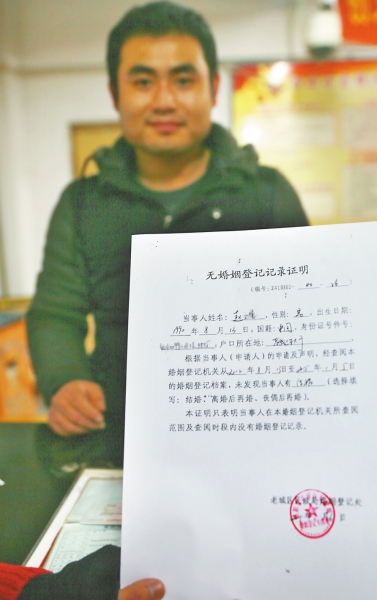 无婚姻登记记录证明
当事人姓名: 性别:男,出生日期:
1990年8月15日,国籍:中国,身份证件号:
户口所在地:
根据当事人(申请人)的申请及声明,经查阅本
婚姻登记机关从 年8月 日至 年1月5日
的婚姻登记档案,未发现当事人有结婚(选择填
写:结婚、离婚后再婚、丧偶后再婚)
本证明只表明当事人在本婚姻登记机关所查阅
范围及查阅时段内没有婚姻登记记录。
老城区民政局婚姻登记处